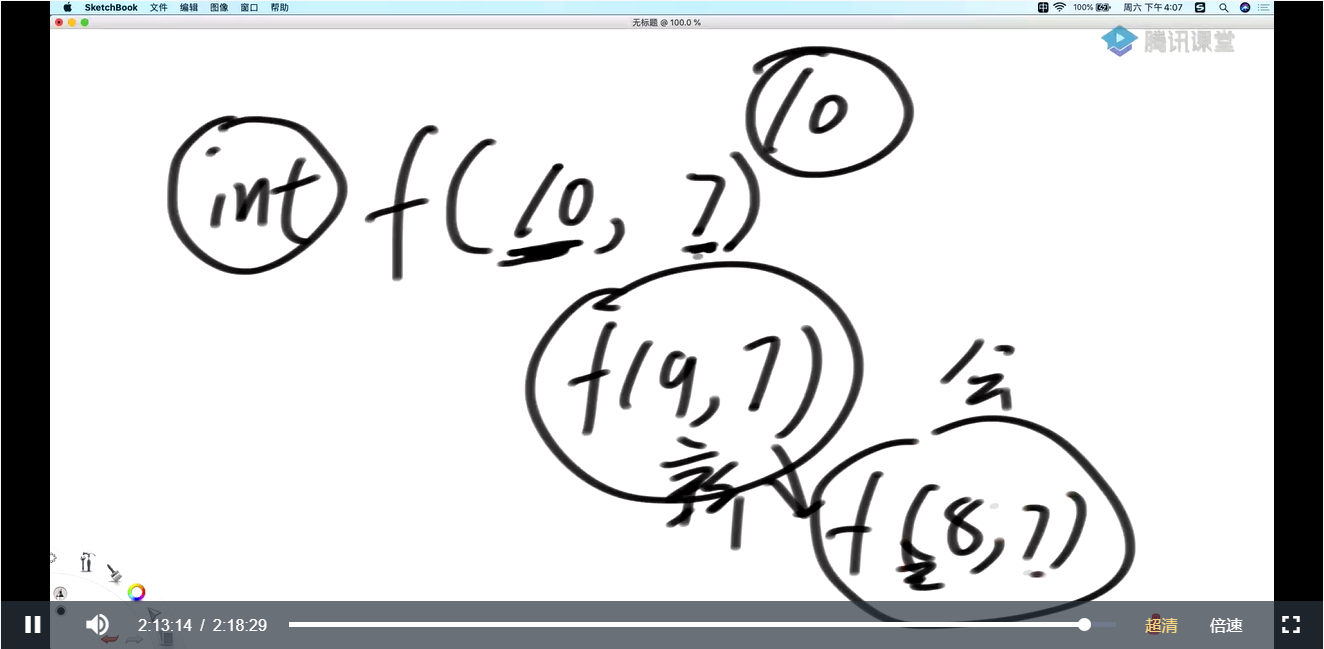 SketchBook 文件 编辑 图像 窗口 帮助 100% 周六 下午4:07
无标题 @ 100.0 %
腾讯课堂
10
int f(10, 7)
f(9,7)
f(8,7)
2:13:14 / 2:18:29 超清 倍速